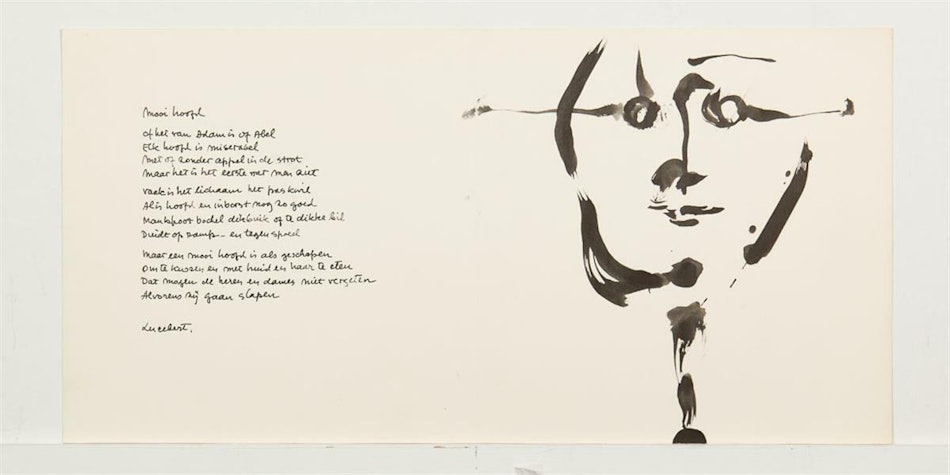 Mooi hoofd
Of het van Adam is of Abel
Elk hoofd is miserabel
Met of zonder appel in de strot
Maar het is het eerste wat men ziet
Vaak is het lichaam het paskwil
Al is hoofd en inborst nog zo goed
Mankepoot bochel dikbuik of te dikke bil
Duidt op ramp - en tegenspoed
Maar een mooi hoofd is als geschapen
Om te kussen en met huid en haar te eten
Dat mogen de heren en dames niet vergeten
Alvorens zij gaan slapen
Lucebert.